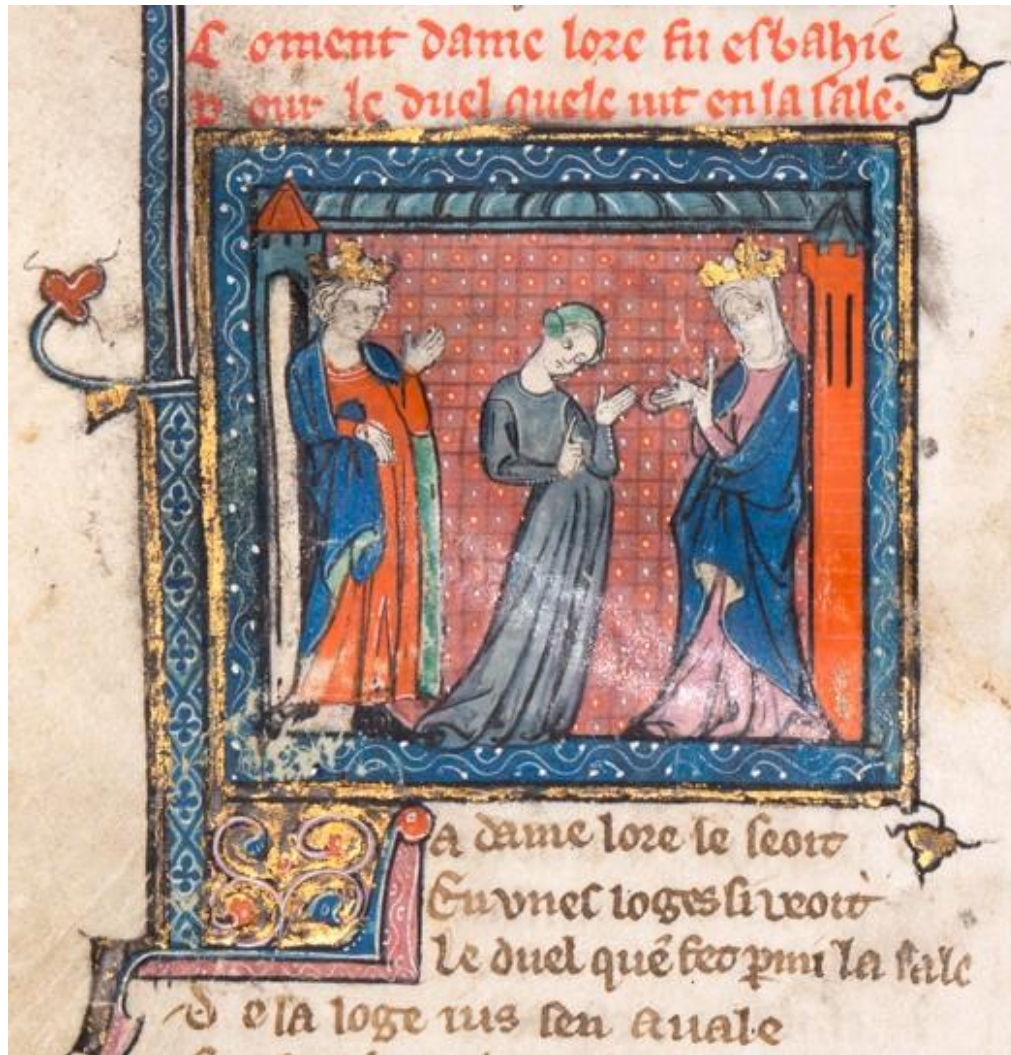 Coment dame lore fu esbahie
pour le duel quele uit en la sale.
La dame lore se seoit
En vnes loges si veoit
le duel quē fet ꝑmi la sale
de sa loge ius sen auale